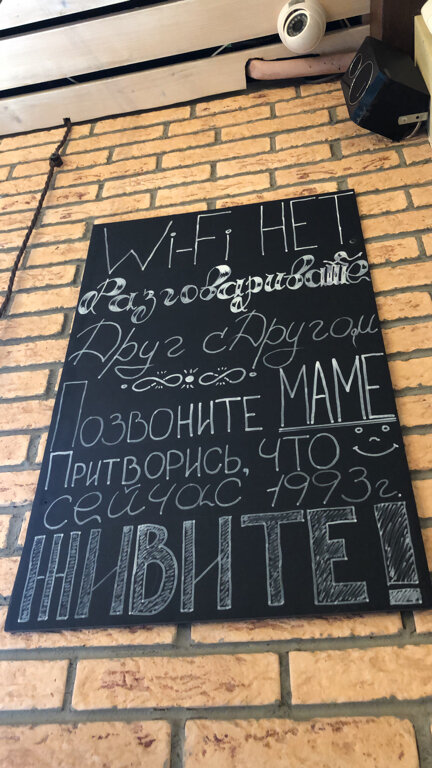 Wi-Fi НЕТ
Разговаривайте
Друг с Другом
Позвоните МАМЕ
Притворись, что
сейчас 1993г.
ЖИВИТЕ!